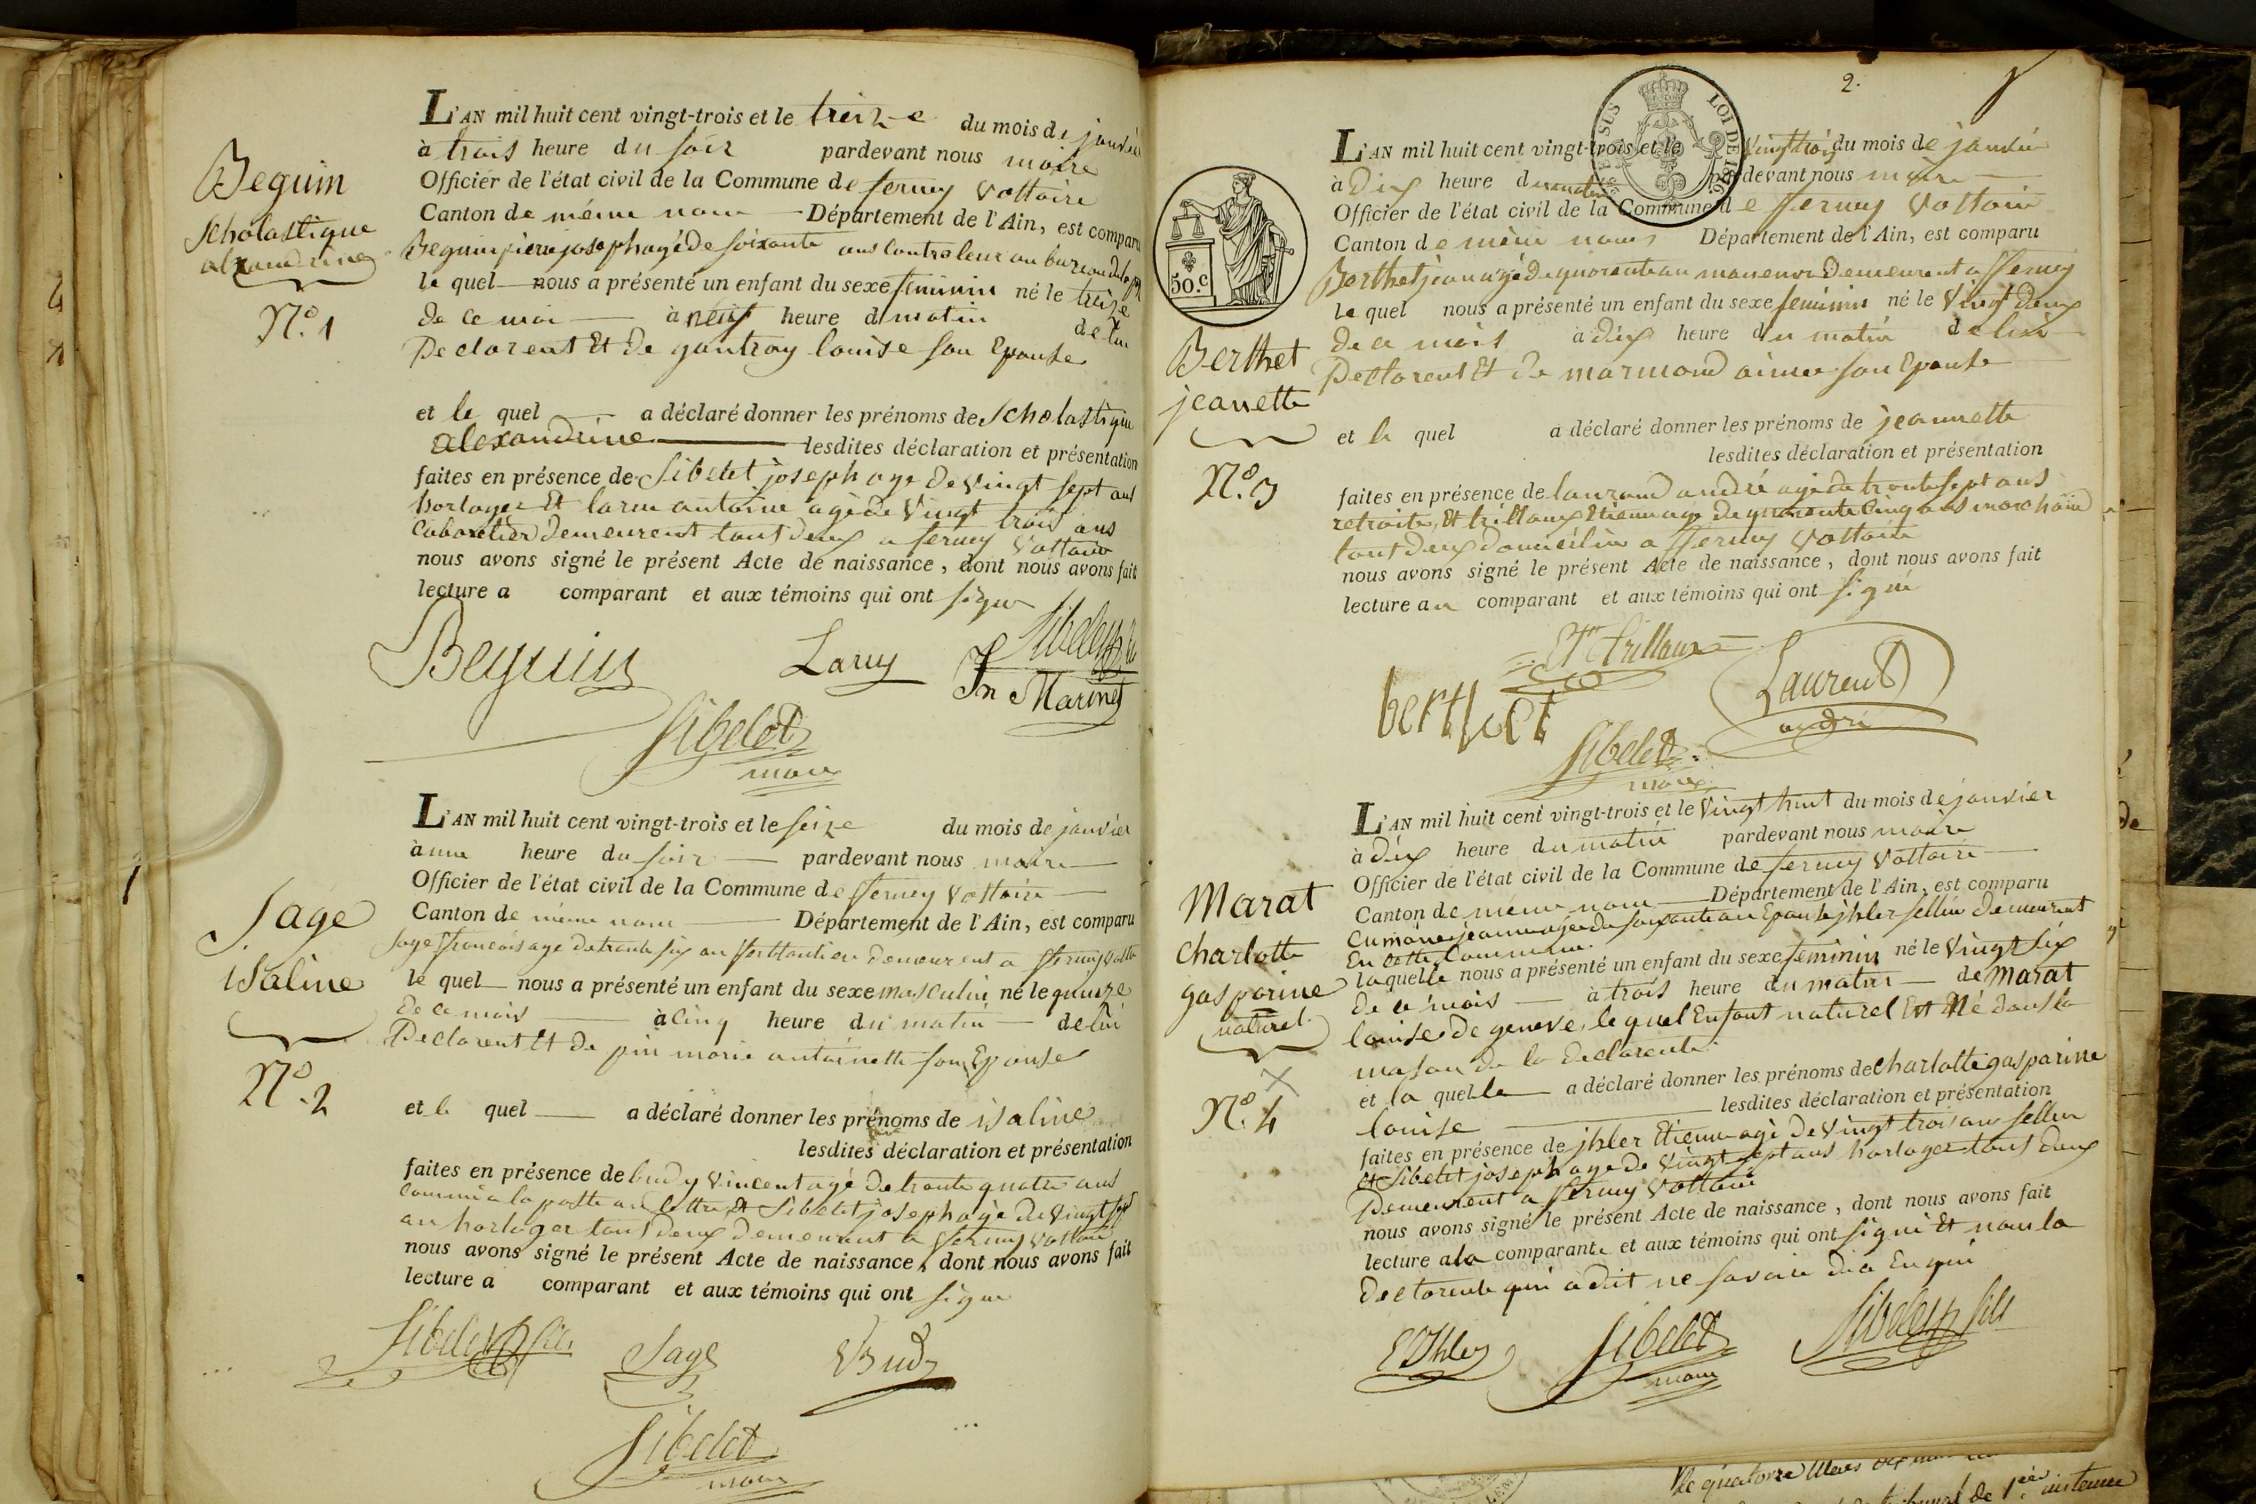 Beguin
Scholastique
alexandrine
N.° 1
L'AN mil huit cent vingt-trois et le treize du mois de janvier
à trois heure du soir pardevant nous maire
Officier de l'état civil de la Commune de ferney Voltaire
Canton de même nom Département de l'Ain, est comparu
Beguin pierre joseph agé de soixante ans controleur au bureau
le quel nous a présenté un enfant du sexe feminin né le treize
de ce moi à neuf heure du matin de lui
Declarent Et de gontray louise son Epouse
et le quel a déclaré donner les prénoms de Scholastique
alexandrine lesdites déclaration et présentation
faites en présence de Sibelet joseph age de vingt sept ans
horloger Et larue antoine agé de Vingt trois ans
Cabaretier demeurent tout deux a ferney Voltaire
nous avons signé le présent Acte de naissance, dont nous avons fait
lecture a comparant et aux témoins qui ont signe
Beguin Laruy Sibelet
Jn Marinet
Sibelet
maire
Sage
isaline
N.° 2
L'AN mil huit cent vingt-trois et le seize du mois de janvier
à une heure du soir pardevant nous maire
Officier de l'état civil de la Commune de ferney Voltaire
Canton de même nom Département de l'Ain, est comparu
Sage francois age de trente six an ferblantier demeurent a ferney Volta
le quel nous a présenté un enfant du sexe masculin né le quinze
de ce mois à cinq heure du matin de lui
Declarent Et de pin marie antoinette son Epouse
et le quel a déclaré donner les prénoms de isaline
lesdites déclaration et présentation
faites en présence de budy Vincent agé de trente quatre ans
commis a la poste au lettre Et Sibelet joseph agé de vingt sept
an horloger tout deux demeurent a ferney Voltaire
nous avons signé le présent Acte de naissance, dont nous avons fait
lecture a comparant et aux témoins qui ont signe
Sibelet fils Sage Budy
Sibelet
maire
2.
SUS LOI DE 1816
50.c
Berthet
jeanette
N.° 3
L'AN mil huit cent vingt-trois et le vingt trois du mois de janvier
à Dix heure du matin pardevant nous maire
Officier de l'état civil de la Commune de ferney Voltaire
Canton de même nom Département de l'Ain, est comparu
Berthet jean agé de quarente an maneuvre Demeurent a fferney
le quel nous a présenté un enfant du sexe feminin né le vingt deux
de ce mois à dix heure du matin de lui
Declarent Et de marmond aimee son Epouse
et le quel a déclaré donner les prénoms de jeannette
lesdites déclaration et présentation
faites en présence de laurand andré agé de trente sept ans
retraite, Et trilloux Etienne age de quarente cinq ans marchand
tout deux domicilié a fferney Voltaire
nous avons signé le présent Acte de naissance, dont nous avons fait
lecture au comparant et aux témoins qui ont signé
Et.ne trilloux
berthet Laurend
andré
Sibelet
maire
Marat
charlotte
gasparine
naturel
N.° 4
L'AN mil huit cent vingt-trois et le vingt huit du mois de janvier
à dix heure du matin pardevant nous maire
Officier de l'état civil de la Commune de ferney Voltaire
Canton de même nom Département de l'Ain, est comparu
jeanne agée de soixante an Epouse jhler sellier demeurent
En cette Commune
laquelle nous a présenté un enfant du sexe feminin né le vingt six
de ce mois à trois heure du matin de Marat
louise de geneve, le quel Enfant naturel Est Né dans la
maison de la declarente
et la quelle a déclaré donner les prénoms de charlotte gasparine
louise lesdites déclaration et présentation
faites en présence de jhler Etienne agé de Vingt trois ans sellier
et Sibelet joseph age de vingt sept ans horloger tout deux
Demeurent a ferney Voltaire
nous avons signé le présent Acte de naissance, dont nous avons fait
lecture a la comparante et aux témoins qui ont signé Et non la
declarente qui a dit ne savoir
E Jhler Sibelet Sibelet fils
maire
le quatorze Mars
de 1ère instance